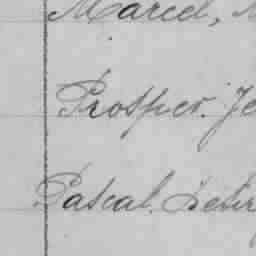 Marcel,
Prosper. Je
Pascal. Desir